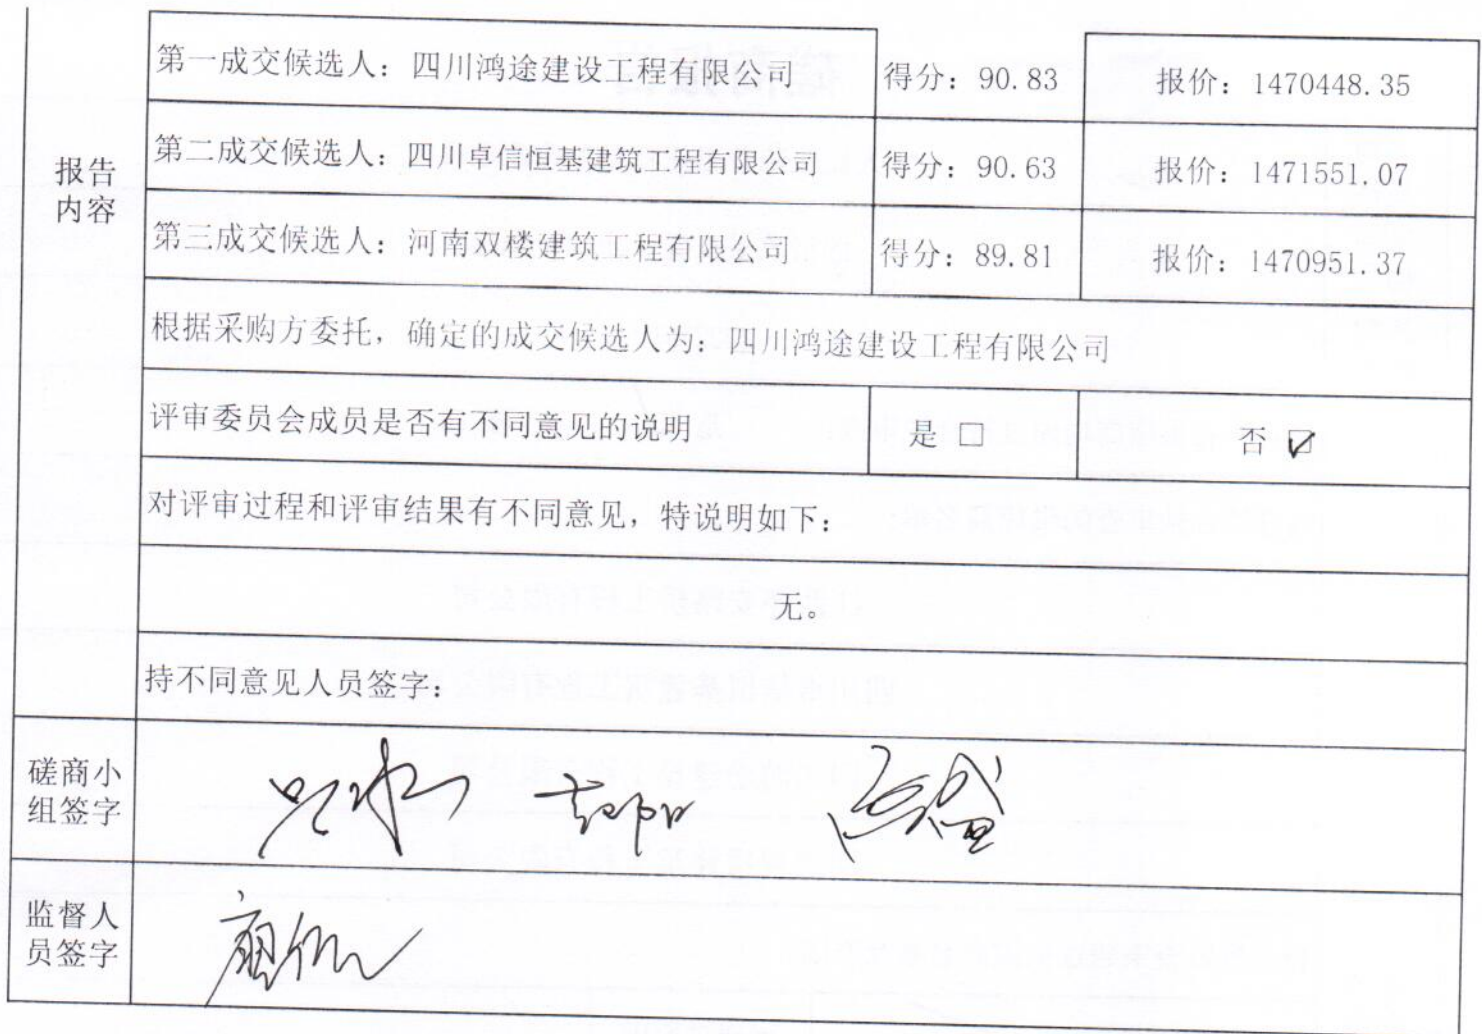 第一成交候选人：四川鸿途建设工程有限公司 得分：90.83 报价：1470448.35
第二成交候选人：四川卓信恒基建筑工程有限公司 得分：90.63 报价：1471551.07
报告
内容
第三成交候选人：河南双楼建筑工程有限公司 得分：89.81 报价：1470951.37
根据采购方委托，确定的成交候选人为：四川鸿途建设工程有限公司
评审委员会成员是否有不同意见的说明 是 □ 否 ☑
对评审过程和评审结果有不同意见，特说明如下：
无。
持不同意见人员签字：
磋商小
组签字
监督人
员签字